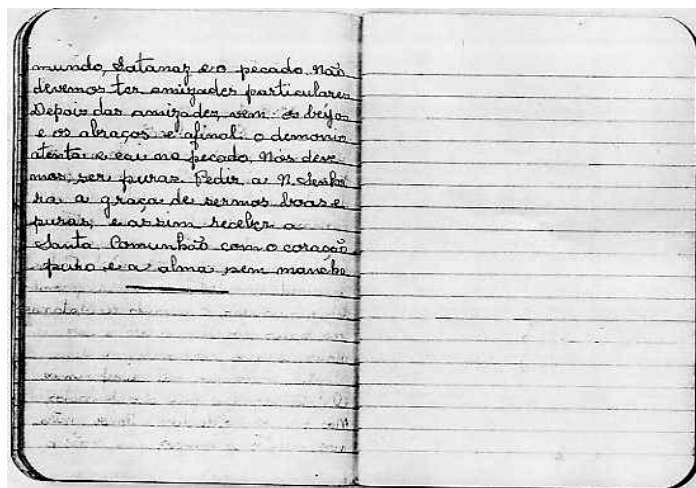 mundo, Satanaz e o pecado. Não
devemos ter amizades particulares
Depois das amizades, vem os beijos
e os abraços e afinal o demonio
atenta e cai no pecado. Nós deve-
mos ser puras. Pedir a N. Senho-
ra a graça de sermos boas e
puras, e assim receber a
Santa Comunhão com o coração
puro e a alma sem mancha